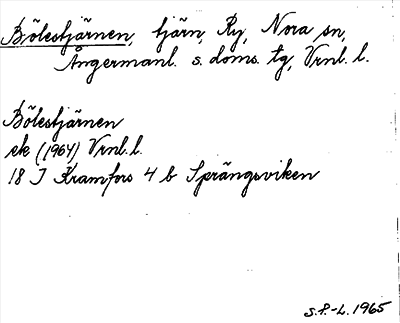 Bölestjärnen, tjärn, Ry, Nora sn,
Ångermanl. s. doms. tg, Vrnl. l.
Bölestjärnen
ek (1964) Vrnl. l.
18 J Kramfors 4 b Sprängsviken
S.P.-L. 1965